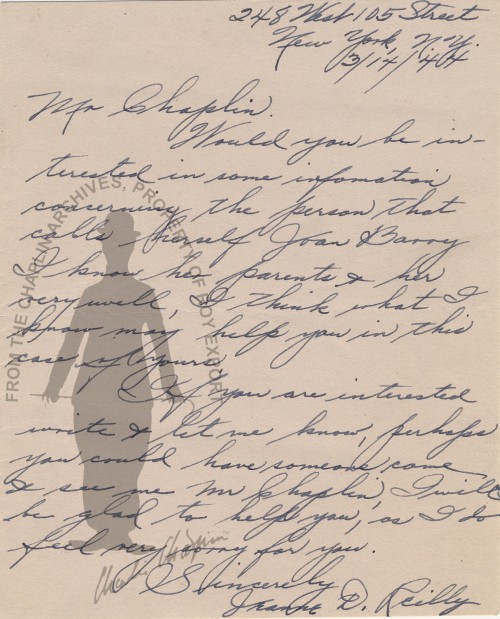 248 West 105 Street
New York, N.Y.
3/14/44
Mr Chaplin.
Would you be in-
terested in some infomation
concerning the person that
calls herself Joan Barry
I know her parents & her
very well, I think what I
know may help you in this
case of yours
If you are interested
write & let me know, perhaps
you could have someone come
& see me Mr Chaplin, I will
be glad to help you, as I do
feel very sorry for you.
Sincerely
Jeanne D. Reilly
FROM THE CHAPLIN ARCHIVES, PROPERTY OF ROY EXPORT
Charlie Chaplin